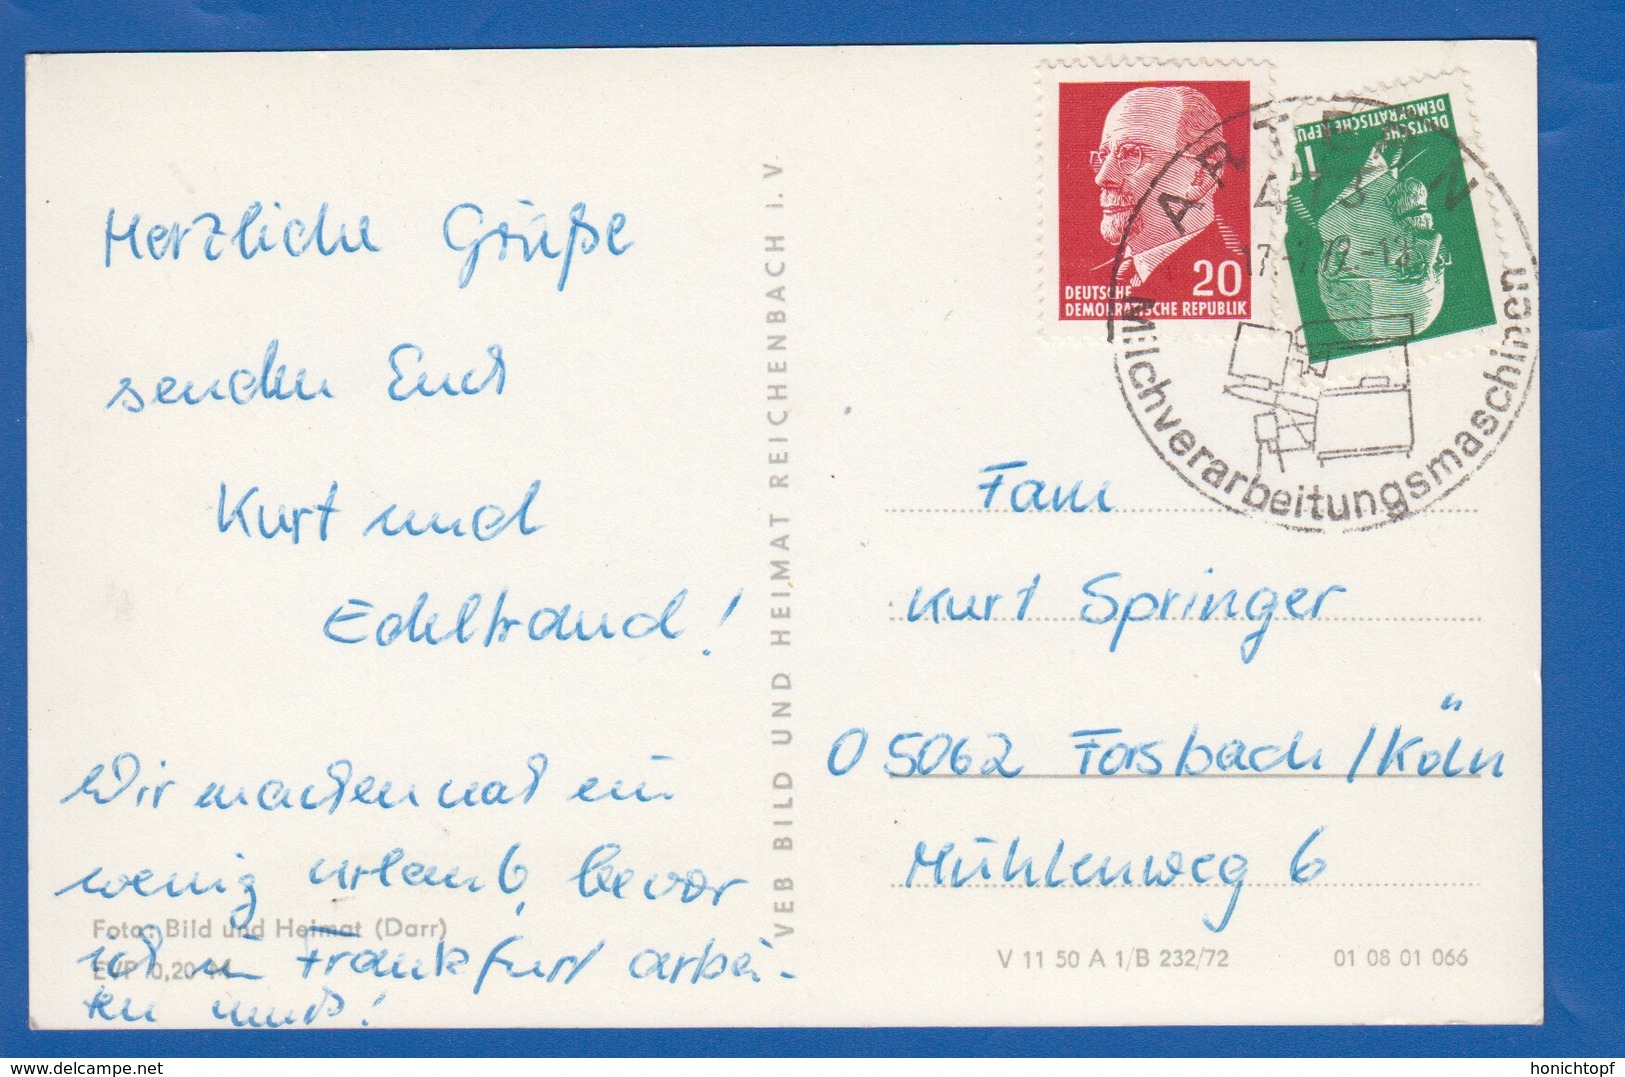 Herzliche Grüße
senden Euch
Kurt und
Edeltraud!
Wir machen noch ein
wenig Urlaub, bevor
ich in Frankfurt arbei-
ten muß!
Foto: Bild und Heimat (Darr)
EVP 0,20 M
VEB BILD UND HEIMAT REICHENBACH i. V.
20
DEUTSCHE
DEMOKRATISCHE REPUBLIK
DEUTSCHE
DEMOKRATISCHE REPU
ARTERN
Milchverarbeitungsmaschinen
Fam
Kurt Springer
O 5062 Forsbach / Köln
Mühlenweg 6
V 11 50 A 1/B 232/72 01 08 01 066
www.delcampe.net
honichtopf